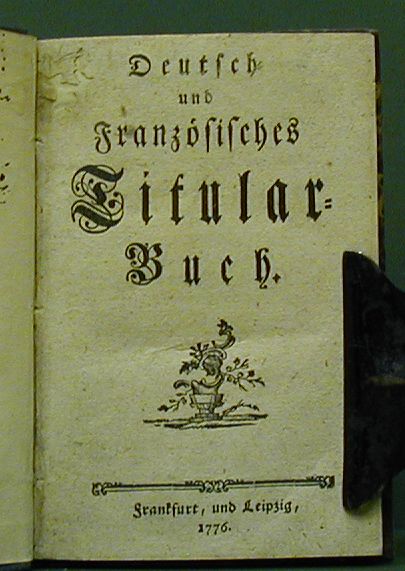 Deutsch
und
Französisches
Titular-
Buch.
Frankfurt, und Leipzig,
1776.